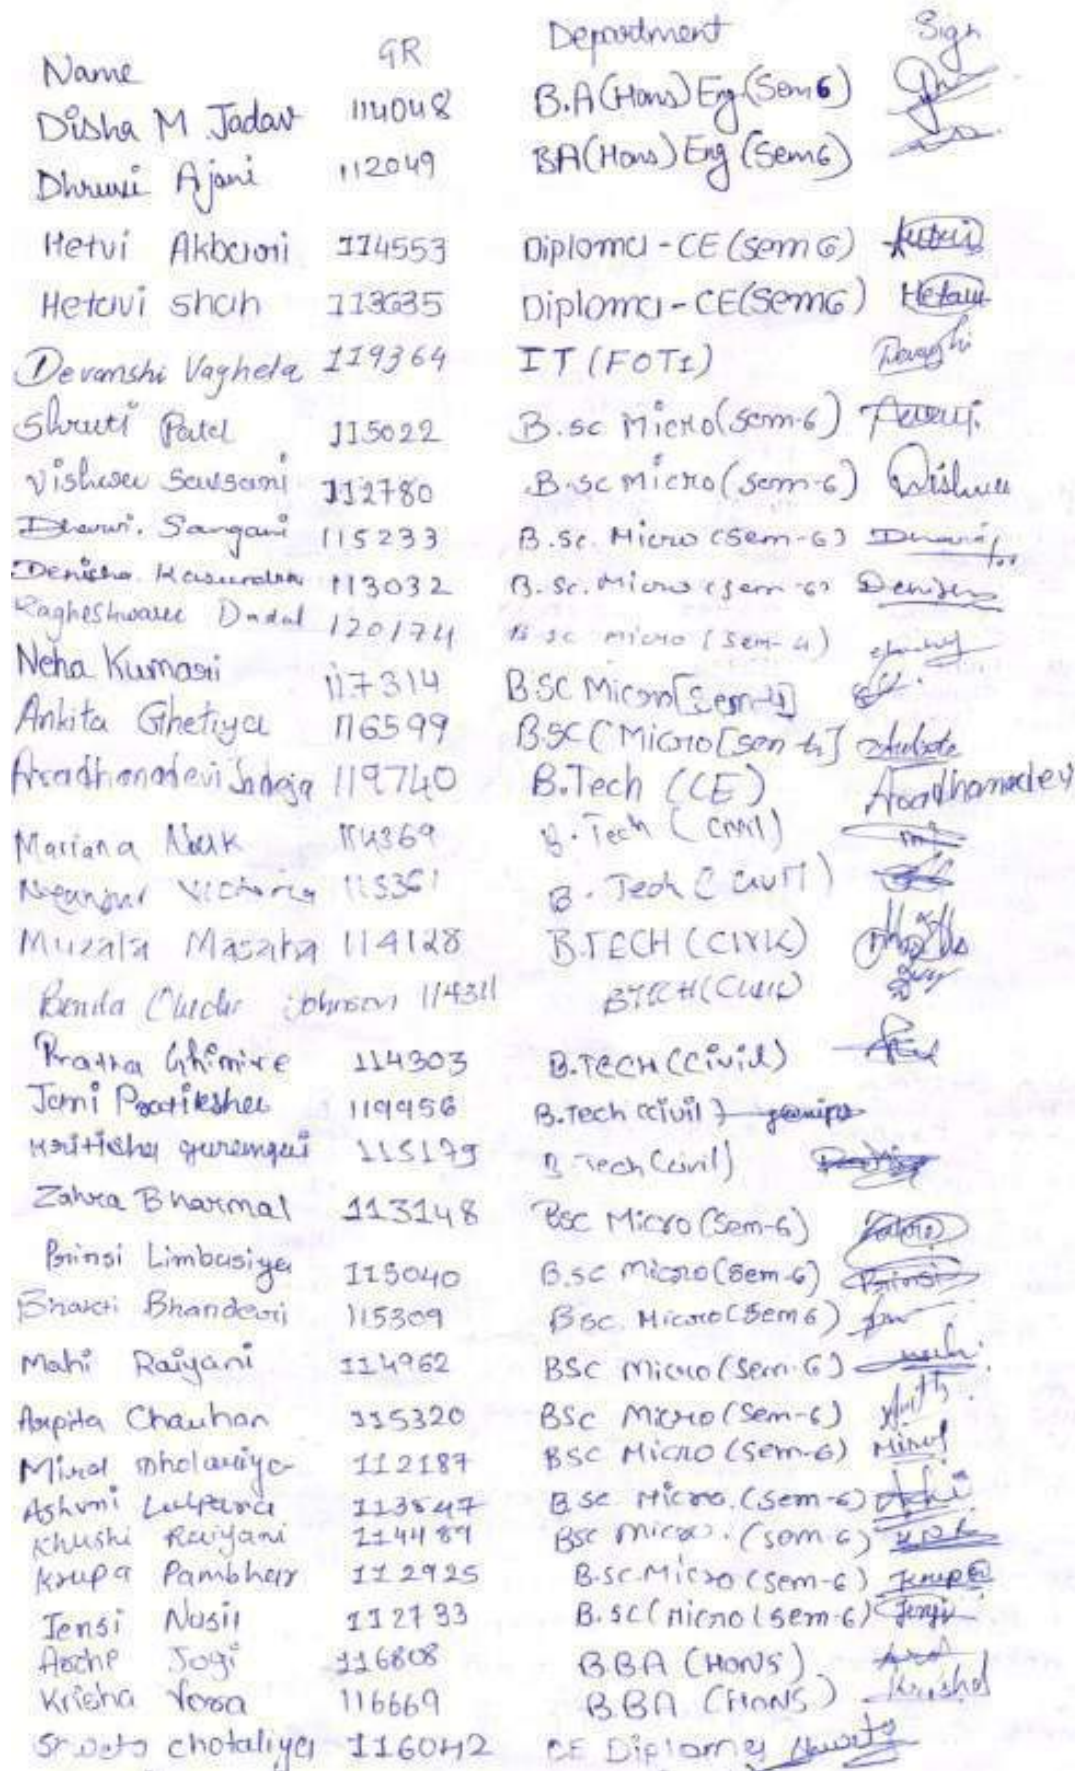 Name GR Department Sign
Disha M Jadav 114048 B.A(Hons) Eng.(Sem 6)
Dhruvi Ajani 112049 BA(Hons) Eng (Sem6)
Hetvi Akbari 114553 Diploma - CE (sem 6)
Hetavi shah 113635 Diploma - CE(Sem6) Hetavi
Devanshi Vaghela 119364 IT (FOT1)
Shruti Patel 115022 B.sc Micro(sem-6)
Vishwa Savsani 112780 B.sc micro (sem-6) Vishwa
Dharvi. Sangani 115233 B.sc. Micro (sem-6)
Denisha Kasundra 113032 B.Sc. Micro (sem-6) Denisha
Ragheshwaree Dadal 120174 B sc micro (Sem-4)
Neha Kumari 117314 BSC Micro[Sem-4]
Ankita Ghetiya 116599 B.SC (Micro[sem 4]
Aradhanadevi Jadeja 119740 B.Tech (CE) Aradhanadevi
Mariana 114369 B. Tech (Civil)
Victoria 115361 B. Tech (Civil)
Muzala Masaka 114128 B.TECH (CIVIL)
Johnson 114311 BTECH(Civil)
Pratha Ghimire 114303 B.TECH (Civil)
Jani Pratiksha 119956 B.Tech (civil)
115179 B.Tech (civil)
Zahra Bharmal 113148 BSC Micro (Sem-6)
Prinsi Limbasiya 113040 B.sc micro (Sem-6) Prinsi
Bhakti Bhanderi 115309 BSc. Micro (Sem 6)
Mahi Raiyani 114962 BSC Micro (Sem-6)
Arpita Chauhan 115320 BSc Micro (Sem-6)
Miral Dholariya 112187 BSC Micro (Sem-6) Miral
Ashvni 113547 BSc Micro. (Sem-6)
Khushi Raiyani 114489 BSc Micro. (sem-6)
Krupa Pambhar 112925 B.SC.Micro (Sem-6) Krupa
Jensi Nasit 112733 B.SC(Micro(sem-6) Jensi
Arche Jogi 116808 BBA (HONS)
Krisha Vora 116669 BBA (HONS) Krisha
Shweta chotaliya 116042 CE Diploma